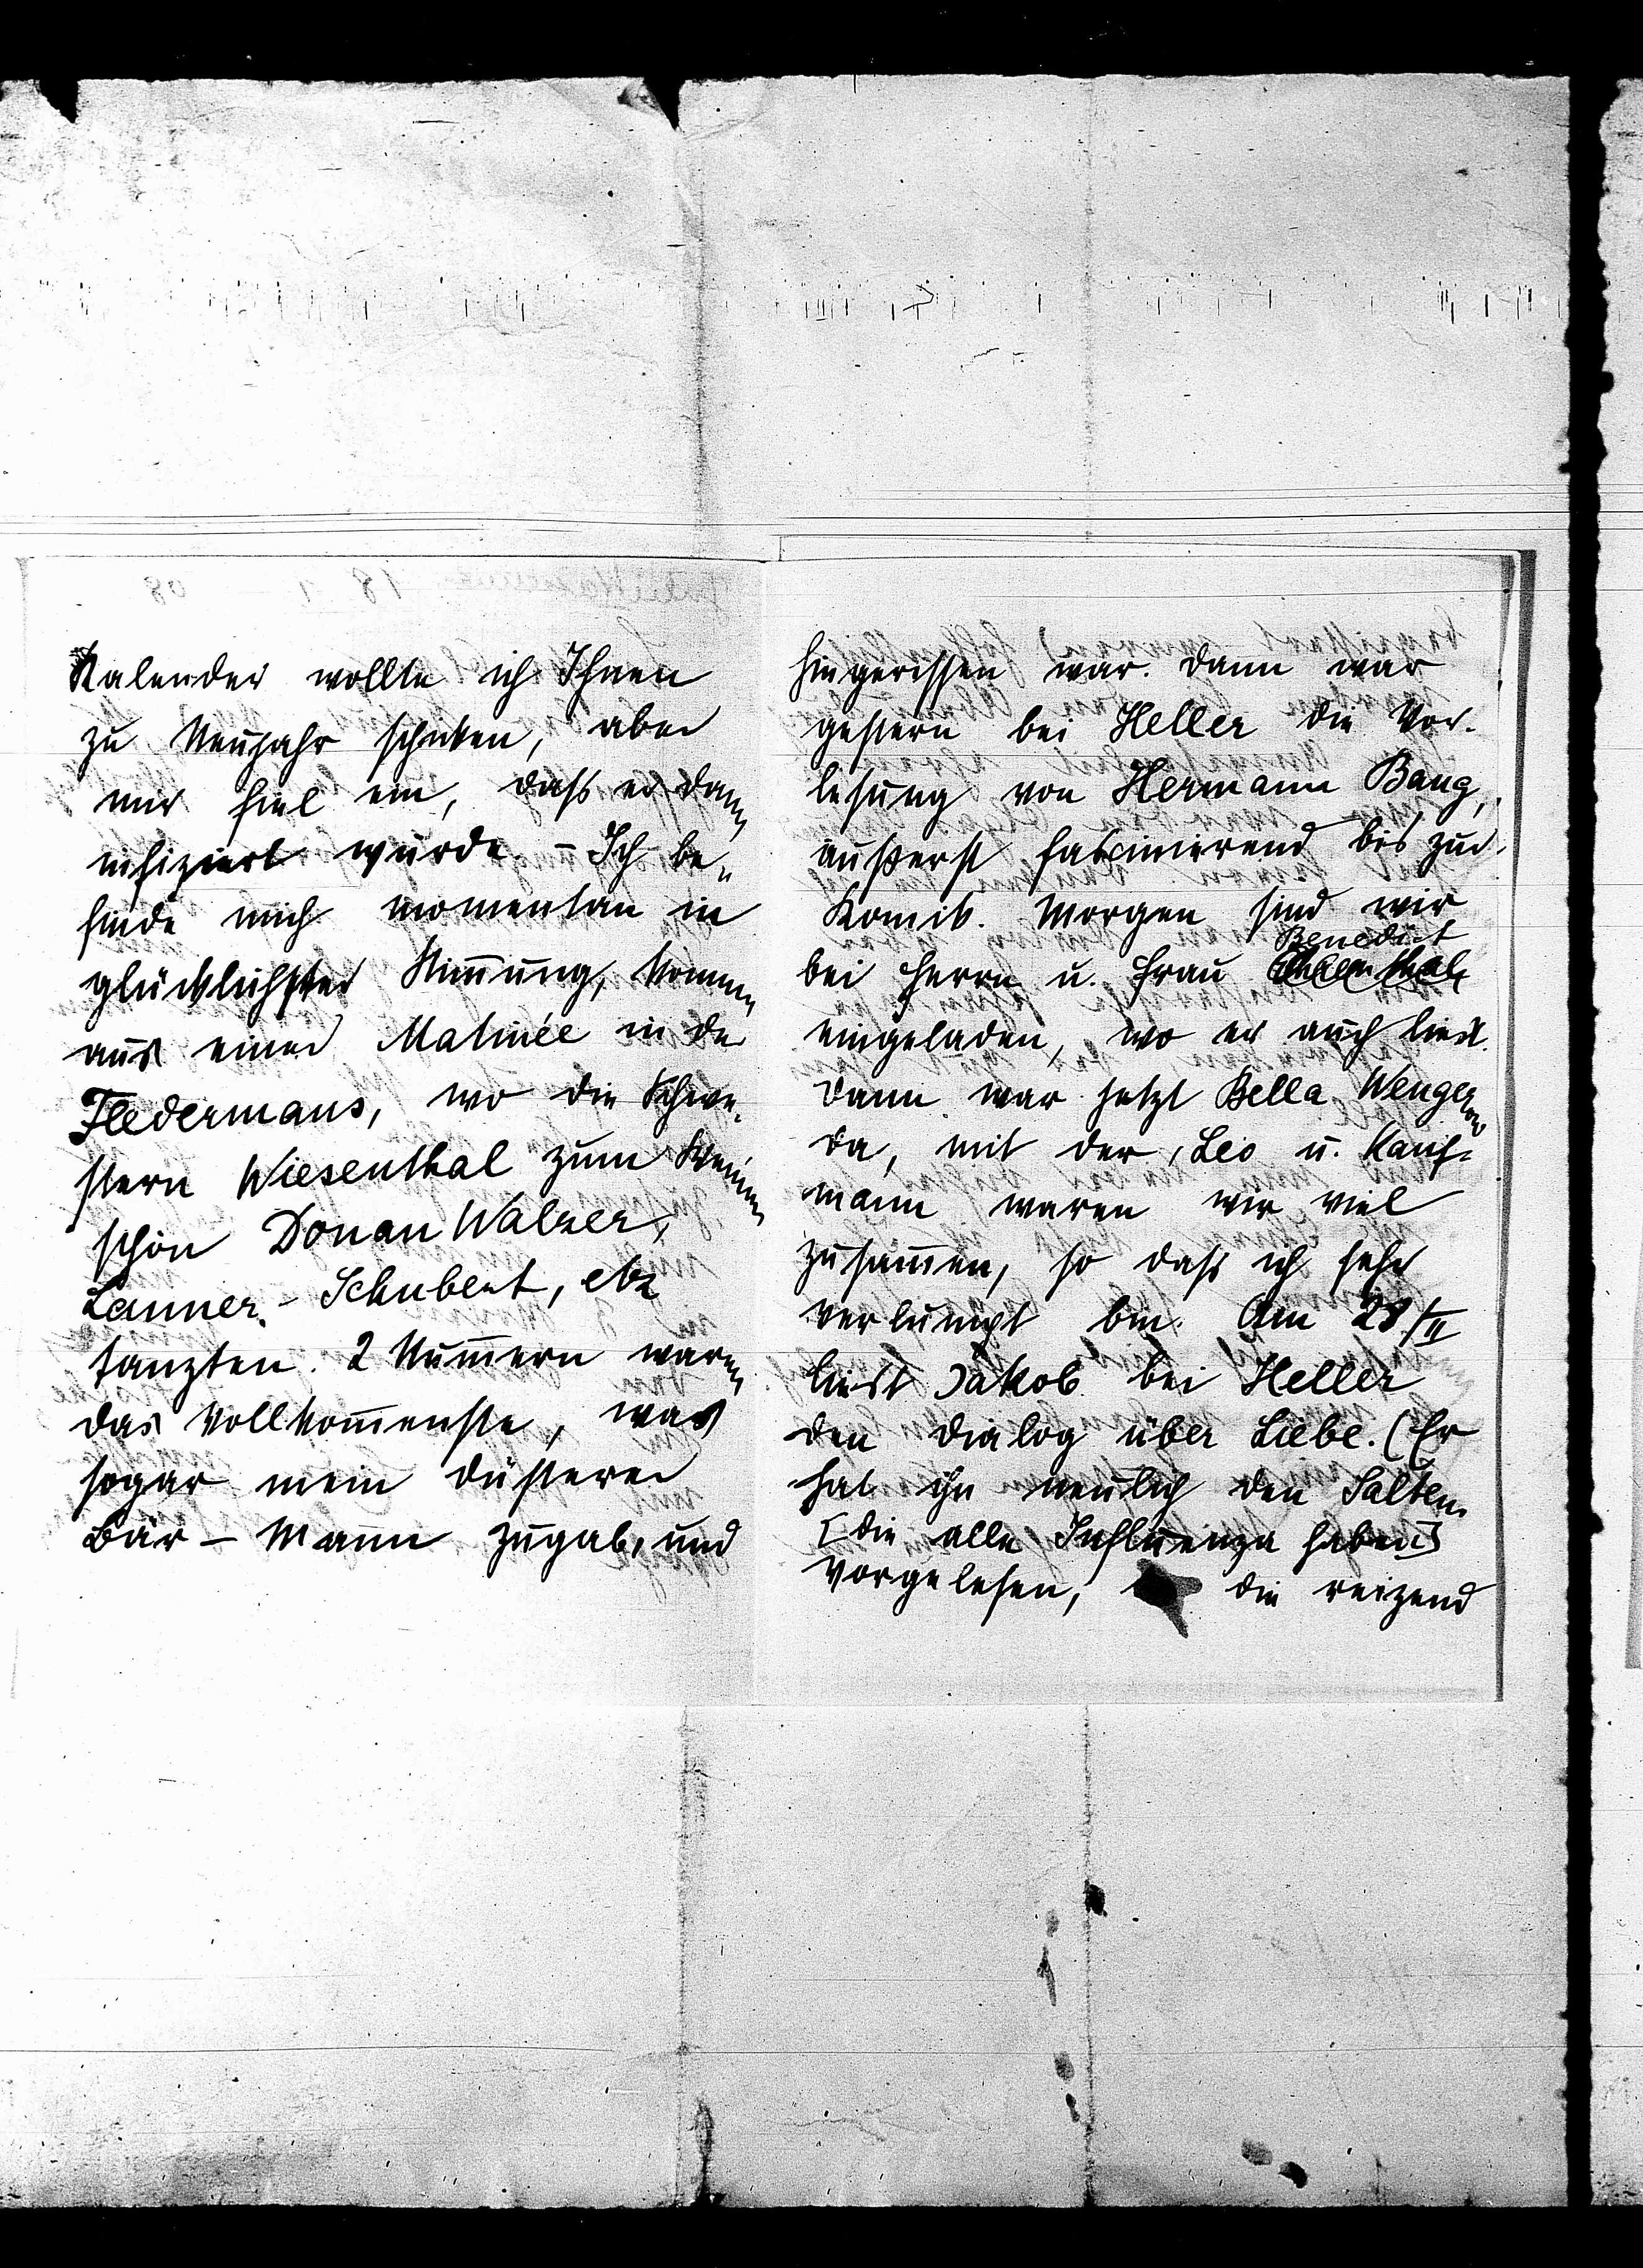 Kalender wollte ich Ihnen
zu Neujahr schicken, aber
mir fiel ein, dass er dam„
nifiziert wurde. – Ich be„
finde mich momentan in
glücklichster Stimmung, komme
aus einer Matinée in der
Fledermaus, wo die Schwe-
stern Wiesenthal zum Weinen
schön Donau Walzer,
Lanner-Schubert, etz
tanzten. 2 Num̅ern waren
das Vollkom̅enste, was
sogar mein düsterer
Bär-Mann zugab, und
hingerissen war. Dann war
gestern bei Heller die Vor-
lesung von Hermann Bang,
äußerst fascinierend bis zur
Komik. Morgen sind wir
Benedict
bei Herrn u. Frau
eingeladen, wo er auch liest.
Dann war jetzt Bella Wengerow
da, mit der, Leo u. Kauf-
mann waren wir viel
zusam̅en, so dass ich sehr
verlumpt bin. Am 28/II
liest Jakob bei Heller
den Dialog über Liebe. (Er
hat ihn neulich den Salten
[die alle Influenza haben]
vorgelesen, die reizend